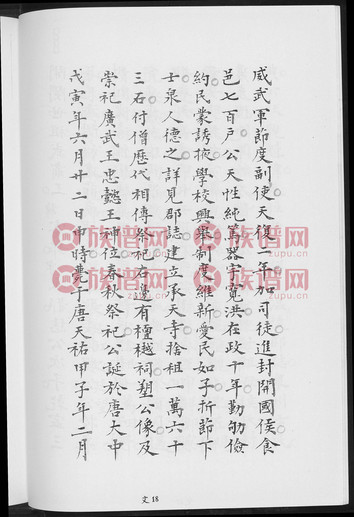 威武軍節度副使天復二年加司徒進封開國侯食
邑七百戶公天性純篤器宇寬洪在政千年勤劬儉
約民蒙誘掖學校興舉制度維新愛民如子折節下
士泉人德之詳見郡誌建立承天寺捨租一萬六千
三石付僧歷代相傳祭祀右邊有檀樾祠塑公像及
崇祀廣武王忠懿王神位春秋祭祀公誕於唐大中
戊寅年六月廿二日申時薨于唐天祐甲子年二月
文18
族谱网
zupu.cn
族谱网
zupu.cn
族谱网
zupu.cn
族谱网
zupu.cn